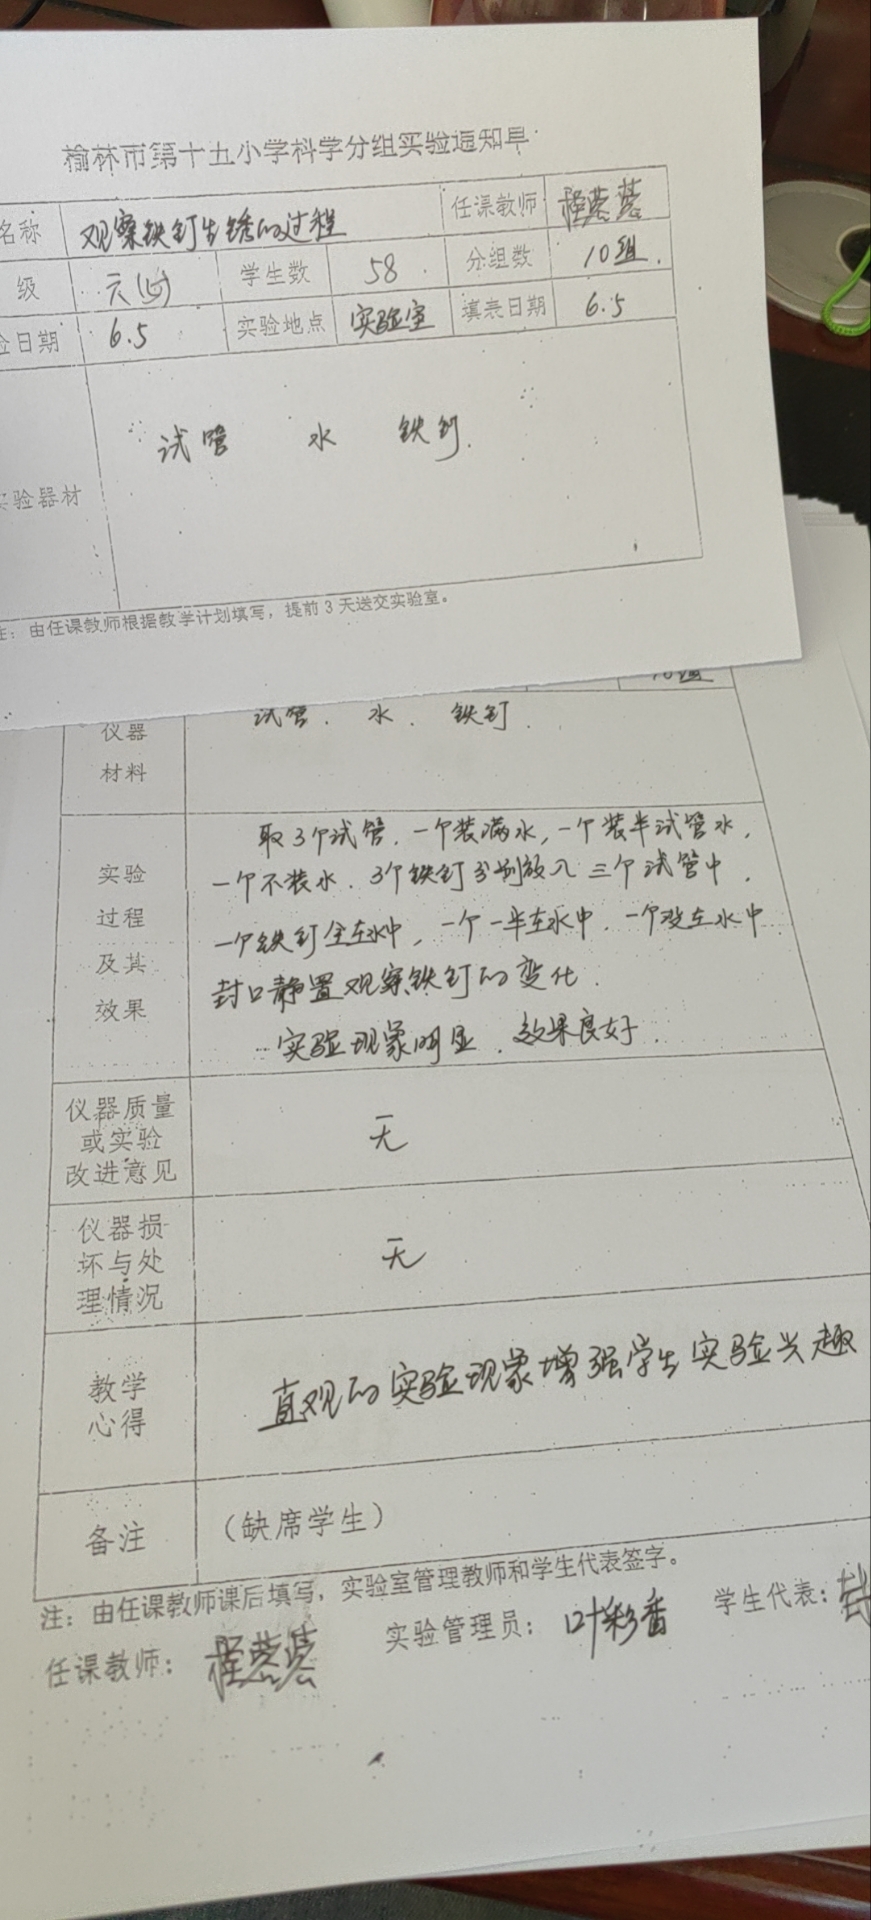 榆林市第十五小学科学分组实验通知单
名称 观察铁钉生锈的过程 任课教师
级 六(4) 学生数 58 分组数 10组.
验日期 6.5 实验地点 实验室 填表日期 6.5
实验器材 试管 水 铁钉.
注：由任课教师根据教学计划填写，提前3天送交实验室。
10组
仪器
材料
试管. 水. 铁钉.
实验
过程
及其
效果
取3个试管, 一个装满水, 一个装半试管水,
一个不装水. 3个铁钉分别放入三个试管中.
一个铁钉全在水中, 一个一半在水中. 一个没在水中
封口静置观察铁钉的变化.
实验现象明显. 效果良好.
仪器质量
或实验
改进意见
无
仪器损
坏与处
理情况
无
教学
心得
直观的实验现象增强学生实验兴趣
备注 （缺席学生）
注：由任课教师课后填写，实验室管理教师和学生代表签字。
任课教师： 实验管理员：叶彩香 学生代表：